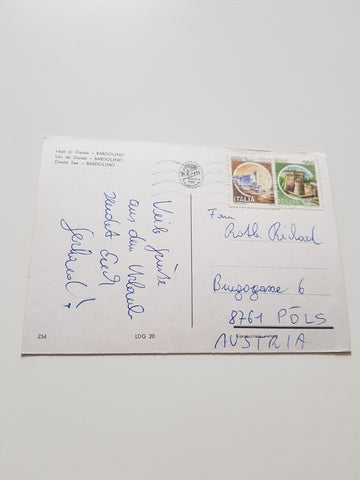 Lago di Garda - BARDOLINO
Lac de Garde - BARDOLINO
Garda See - BARDOLINO
Viele Grüße
aus dem Urlaub
sendet Euch
Gerhard!
ITALIA
Fam.
Roth Richard
Burggasse 6
8761 PÖLS
AUSTRIA
254
LDG 20